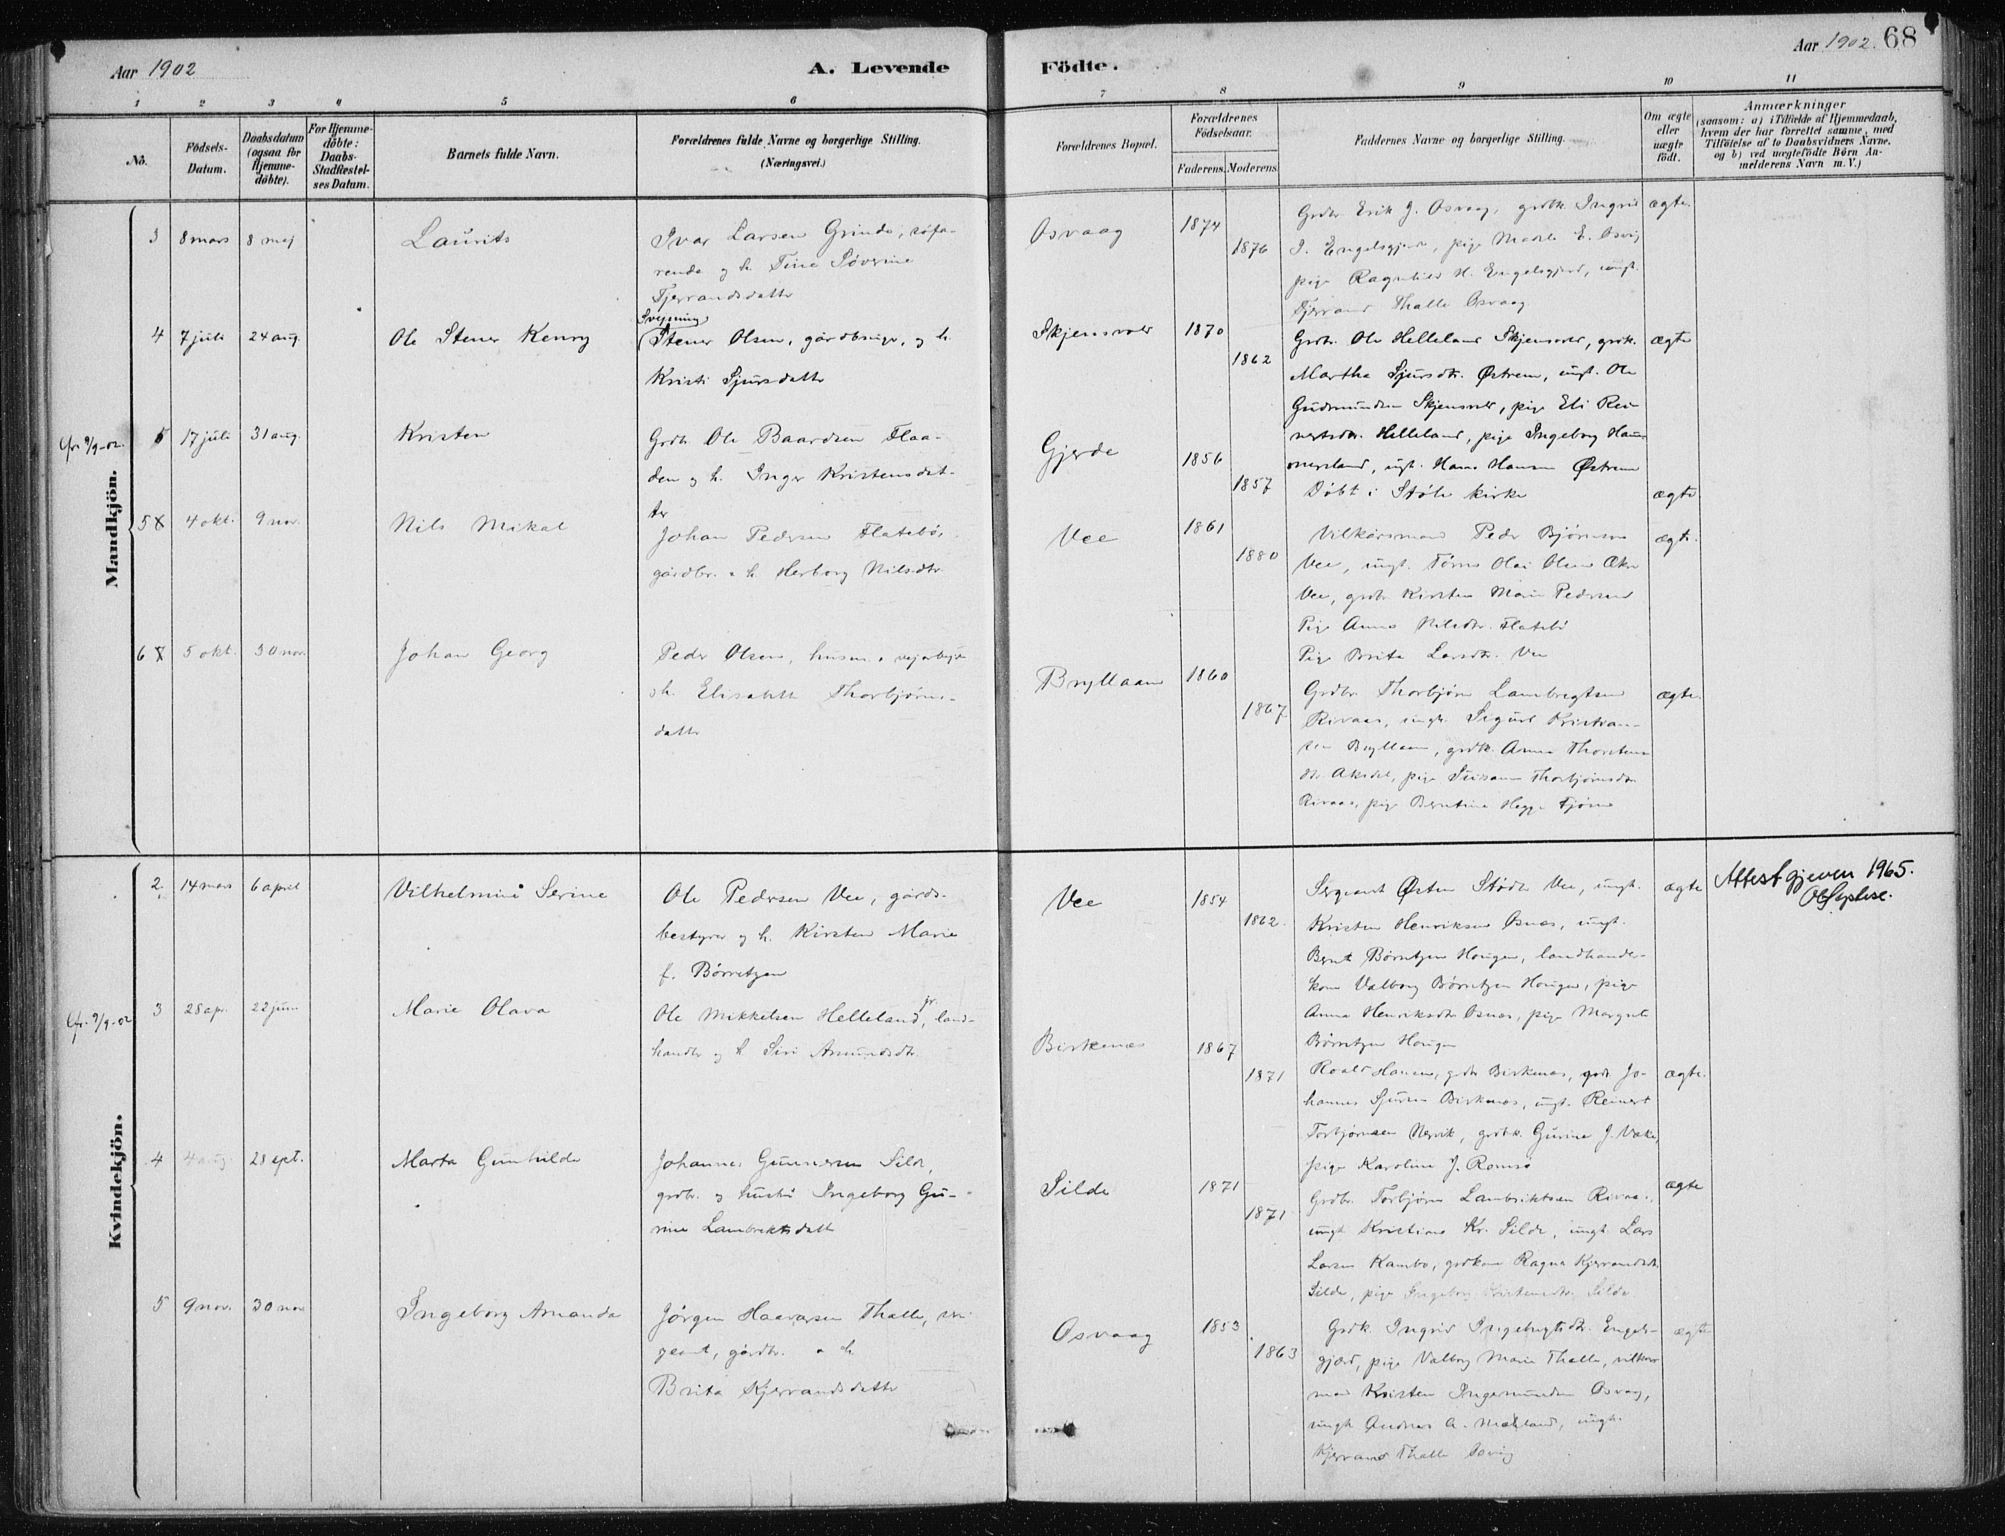 Aar 1902
A. Levende
Födte.
Aar 1902.
68
1 2 3 4 5 6 7 8 9 10 11
No.
Födsels-
Datum.
Daabsdatum
(ogsaa for
Hjemme-
døbte).
For Hjemme-
døbte:
Daabs-
Stadfæstel-
ses Datum.
Barnets fulde Navn.
Forældrenes fulde Navne og borgerlige Stilling.
(Næringsvei.)
Forældrenes Bopæl.
Forældrenes
Födselsaar.
Faderens.
Moderens.
Faddernes Navne og borgerlige Stilling.
Om ægte
eller
uægte
født.
Anmærkninger
(saasom: a) i Tilfælde af Hjemmedaab,
hvem der har forrettet samme, med
Tilføielse af to Daabsvidners Navne,
og b) ved uægtefödte Börn An-
melderens Navn m. V.)
Mandkjön.
3 8 mars 8 mai
Laurits
Ivar Larsen Grinde, søfa-
rende og h. Tine Søverine
Tjerrandsdatter
Osvaag
1874
1876
Grdbr. Erik J. Osvaag, grdbk. Ingrid
I. Engelsgjerd, pige Marta E. Osvåg
pige Ragnhild H. Engelsgjerd, ungk.
Tjerrand Thalle Osvaag
ægte
4 7 juli 24 aug.
Ole Stener Kenry
Svejsning
Stener Olsen, gårdbruger, og h.
Kristi Sjursdatter
Skjensvold
1870
1862
Grdbr. Ole Helleland Skjensvold, grdbk.
Martha Sjursdtr. Østrem, ungk. Ole
Gudmundsen Skjensvold, pige Eli Rei-
nertsdtr. Helleland, pige Ingeborg Ham-
mersland, ungk. Hans Hansen Østrem
ægte
9/9-02.
5 17 juli 31 aug.
Kristen
Grdbr. Ole Baardsen Flaa-
den og h. Inger Kristensdat-
ter
Gjerde
1856
1857
Døbt i Støle kirke
ægte
5 4 okt. 9 nov.
Nils Mikal
Johan Pedersen Flatebø,
gårdbr. o h. Herborg Nilsdtr.
Vee
1861
1880
Vilkårsmand Peder Bjørnsen
Vee, ungk. Tørres Olai Olsen
Vee, grdbr. Kirsten Marie Pedersen
Pige Anna Nilsdtr. Flatebø
Pige Brita Larsdtr. Vee
ægte
6 5 okt. 30 nov.
Johan Georg
Peder Olsen, husm. o vejarbejder
o h. Elisabeth Thorbjørns-
datter
Bryllaam
1860
1867
Grdbr. Thorbjørn Lambregtsen
Rivaas, ungk. Sigurd Kristian-
sen Bryllaam, grdbk. Anna Thorstens-
dtr. Akedal, pige Susanne Thorbjørnsdtr.
Rivaas, pige Berntine Fjørn
ægte
Kvindekjön.
2 14 mars 6 april
Vilhelmine Serine
Ole Pedersen Vee, gårds-
bestyrer og h. Kirsten Marie
f. Børretzen
Vee
1854
1862.
Sergeant Østen Støle Vee, ungk.
Kristen Henriksen Osnæs, ungk.
Bernt Børretzen Hougen, landhandler-
kone Valborg Børretzen Hougen, pige
Anna Henriksdtr Osnæs, pige Margret
Børretzen Hougen
ægte
Attest gjeven 1965.
9/9-02
3 28 apr. 22 juni
Marie Olava
Ole Mikkelsen Helleland, jr. land-
handler og h. Siri Amundsdtr.
Birkenæs
1867
1871
Roald Hansen, grdbr. Birkenæs, grdbr. Jo-
hannes Sjursen Birkenæs, ungk. Reinert
Torbjørnsen Nervik, grdbk. Gurine J. Vaka,
pige Karoline J. Romsø
ægte.
4 4 aug. 28 sept.
Marta Gunhilde
Johannes Gunnersen Silde,
grdbr. og hustru Ingeborg Gu-
rine Lambrektsdatter
Silde
1871
1871
Grdbr. Torbjørn Lambriktsen Rivaas,
ungk Kristian Kr. Silde, ungk. Lars
Larsen Kambo, grdkone Ragna Kjerrandsdtr.
Silde, pige Ingeborg Kristensdtr. Silde.
ægte
5 9 nov. 30 nov
Ingeborg Amanda
Jørgen Haavarsen Thalle, ser-
geant, gårdbr. o h.
Brita Kjerrandsdatter
Osvaag
1853
1863
Grdk. Ingrid Ingebrigtsdtr. Engels-
gjærd, pige Valborg Marie Thalle, vilkårs-
mand Kristen Ingemundsen Osvåg,
ungk Andreas A. Mæland, ungk.
Kjerrand Thalle Osvåg
ægte